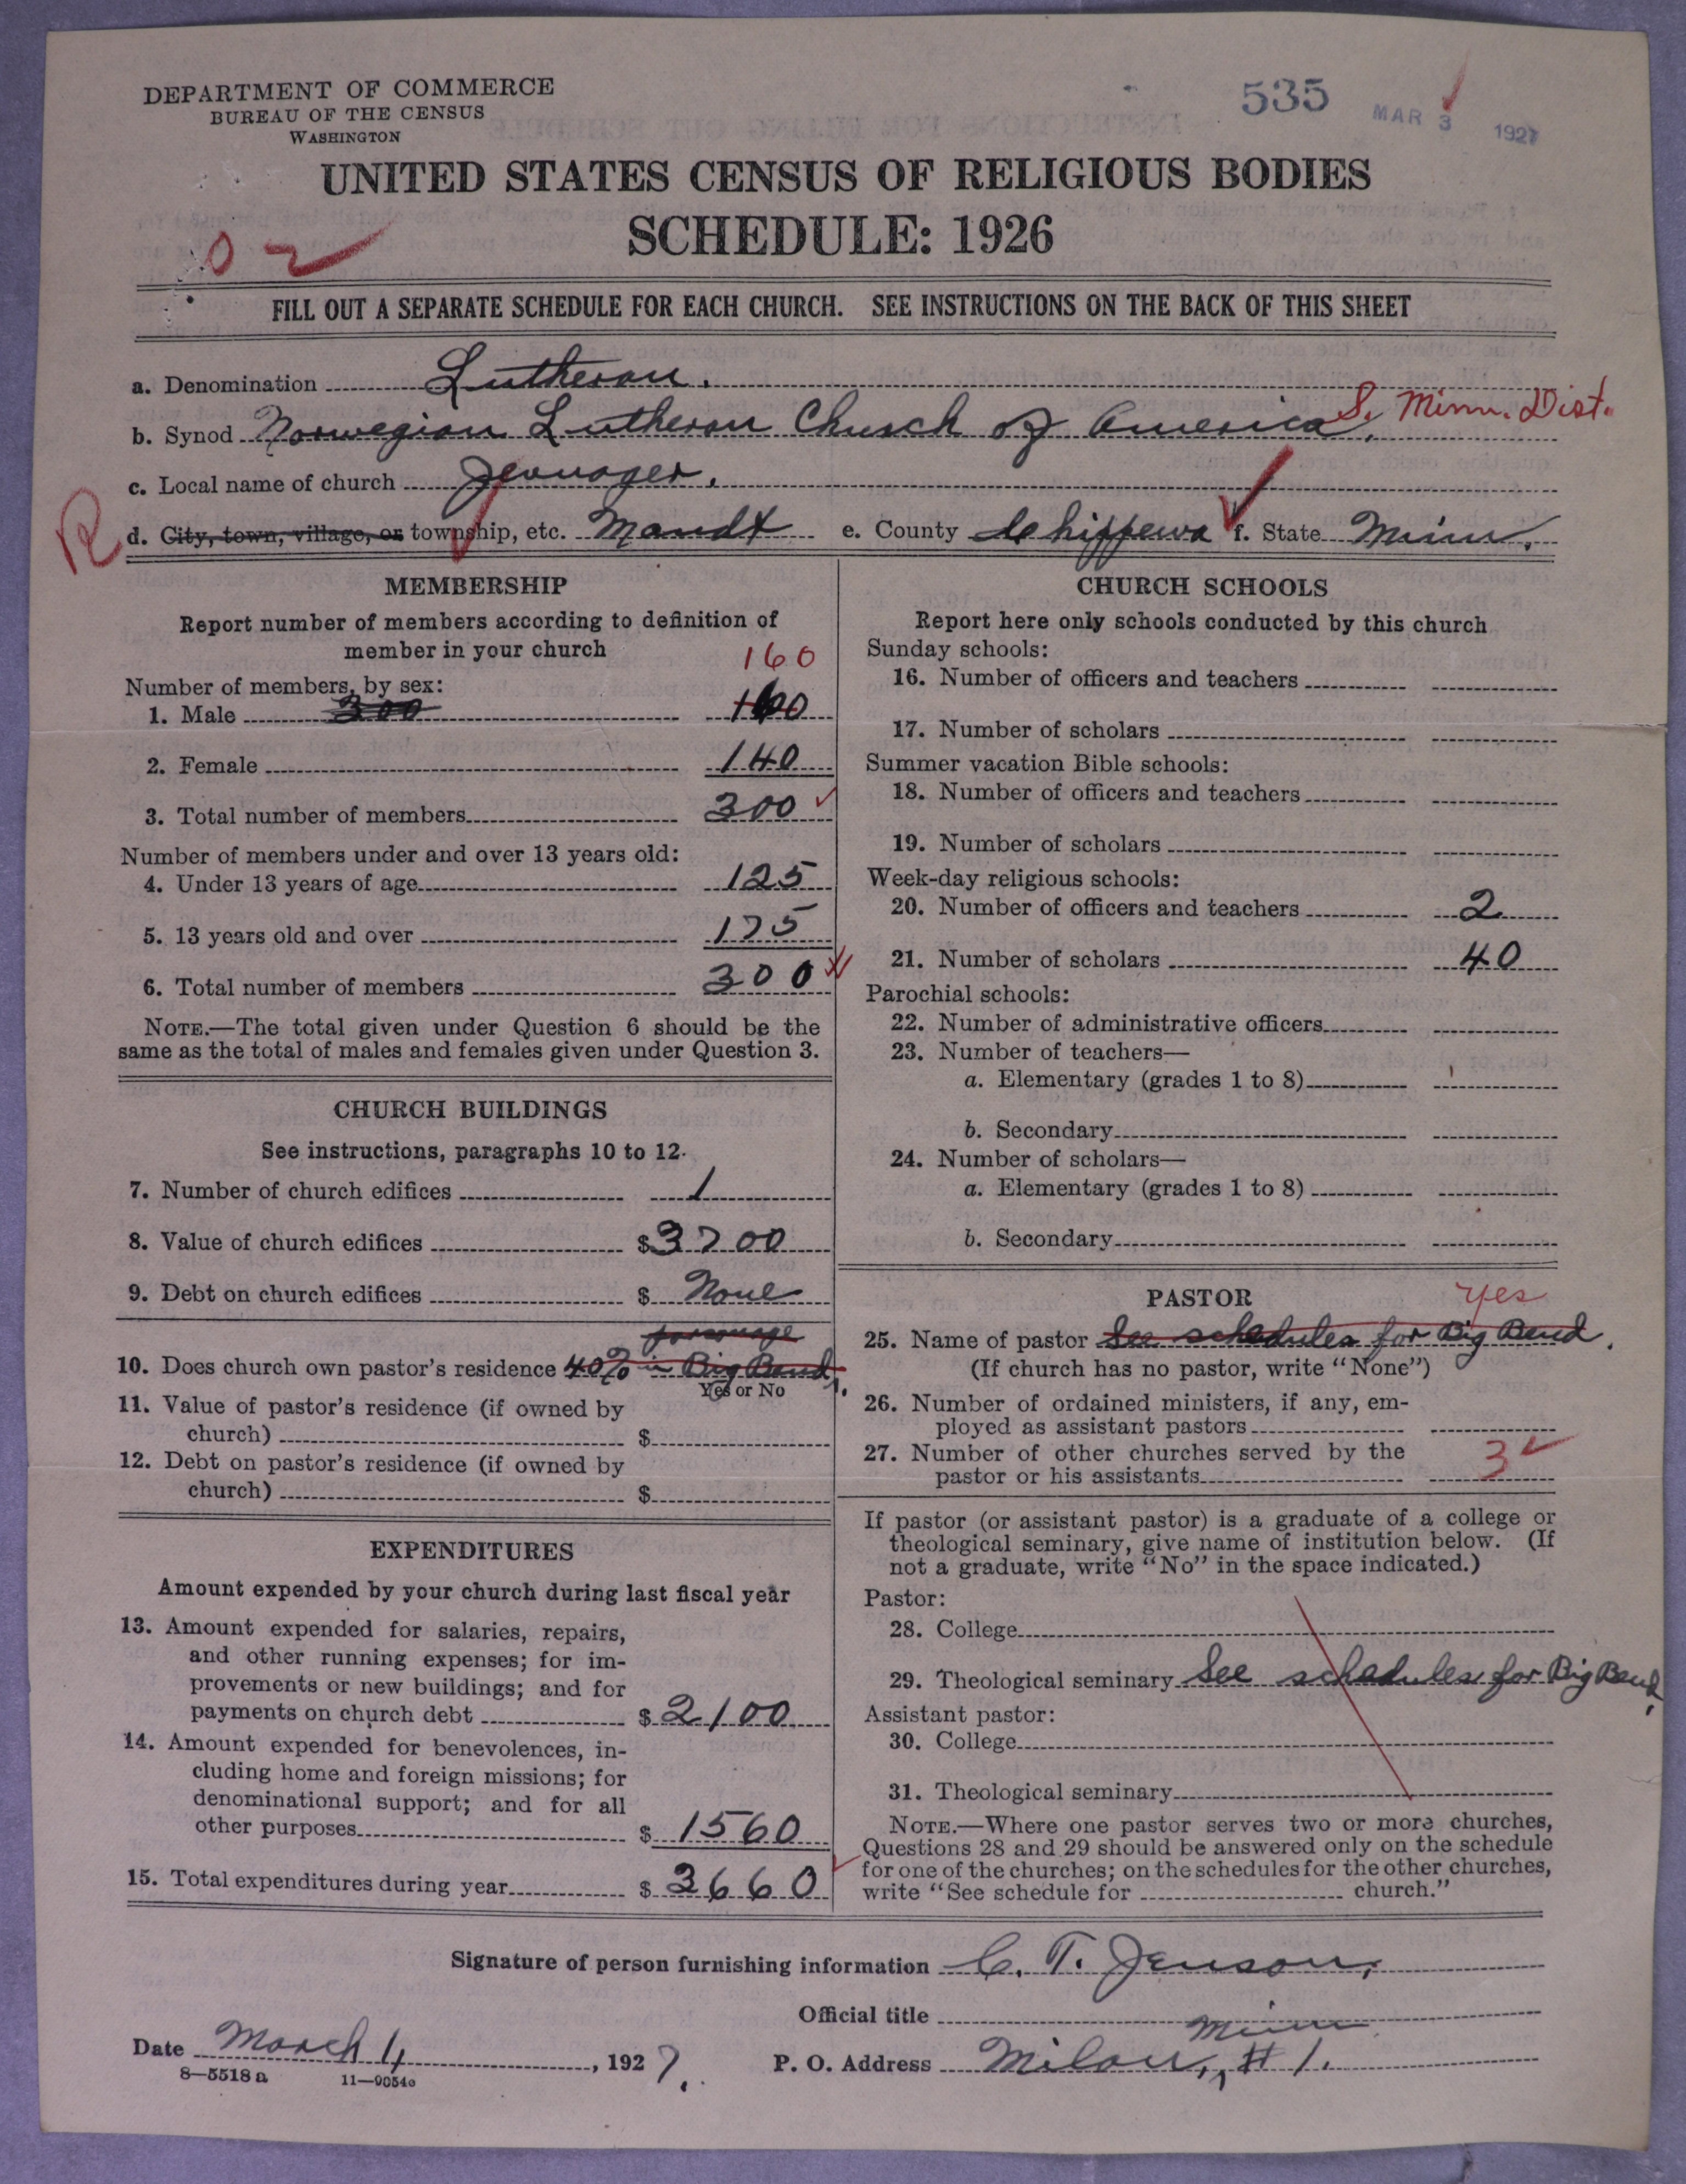 DEPARTMENT OF COMMERCE
BUREAU OF THE CENSUS
WASHINGTON
535
MAR 3 1927
UNITED STATES CENSUS OF RELIGIOUS BODIES
SCHEDULE: 1926
FILL OUT A SEPARATE SCHEDULE FOR EACH CHURCH. SEE INSTRUCTIONS ON THE BACK OF THIS SHEET
a. Denomination Lutheran.
b. Synod Norwegian Lutheran Church of America. S. Minn. Dist.
c. Local name of church Jevnager.
R
d. City, town, village, or township, etc. Mandt e. County Chippewa f. State Minn.
MEMBERSHIP
Report number of members according to definition of
member in your church
160
Number of members, by sex:
1. Male 300 160
2. Female 140
3. Total number of members 300
Number of members under and over 13 years old:
4. Under 13 years of age 125
5. 13 years old and over 175
6. Total number of members 300
NOTE.—The total given under Question 6 should be the
same as the total of males and females given under Question 3.
CHURCH BUILDINGS
See instructions, paragraphs 10 to 12.
7. Number of church edifices 1
8. Value of church edifices $3700
9. Debt on church edifices $ None
parsonage
10. Does church own pastor's residence 40% in Big Bend.
Yes or No
11. Value of pastor's residence (if owned by
church) $
12. Debt on pastor's residence (if owned by
church) $
EXPENDITURES
Amount expended by your church during last fiscal year
13. Amount expended for salaries, repairs,
and other running expenses; for im-
provements or new buildings; and for
payments on church debt $ 2100
14. Amount expended for benevolences, in-
cluding home and foreign missions; for
denominational support; and for all
other purposes $ 1560
15. Total expenditures during year $ 3660
CHURCH SCHOOLS
Report here only schools conducted by this church
Sunday schools:
16. Number of officers and teachers
17. Number of scholars
Summer vacation Bible schools:
18. Number of officers and teachers
19. Number of scholars
Week-day religious schools:
20. Number of officers and teachers 2
21. Number of scholars 40
Parochial schools:
22. Number of administrative officers
23. Number of teachers—
a. Elementary (grades 1 to 8)
b. Secondary
24. Number of scholars—
a. Elementary (grades 1 to 8)
b. Secondary
PASTOR
yes
25. Name of pastor See schedules for Big Bend.
(If church has no pastor, write "None")
26. Number of ordained ministers, if any, em-
ployed as assistant pastors
27. Number of other churches served by the
pastor or his assistants 3
If pastor (or assistant pastor) is a graduate of a college or
theological seminary, give name of institution below. (If
not a graduate, write "No" in the space indicated.)
Pastor:
28. College
29. Theological seminary See schedules for Big Bend.
Assistant pastor:
30. College
31. Theological seminary
NOTE.—Where one pastor serves two or more churches,
Questions 28 and 29 should be answered only on the schedule
for one of the churches; on the schedules for the other churches,
write "See schedule for church."
Signature of person furnishing information C. T. Jenson,
Official title
Date March 1, 1927. P. O. Address Milan, Minn #1.
8—5518 a 11—9054